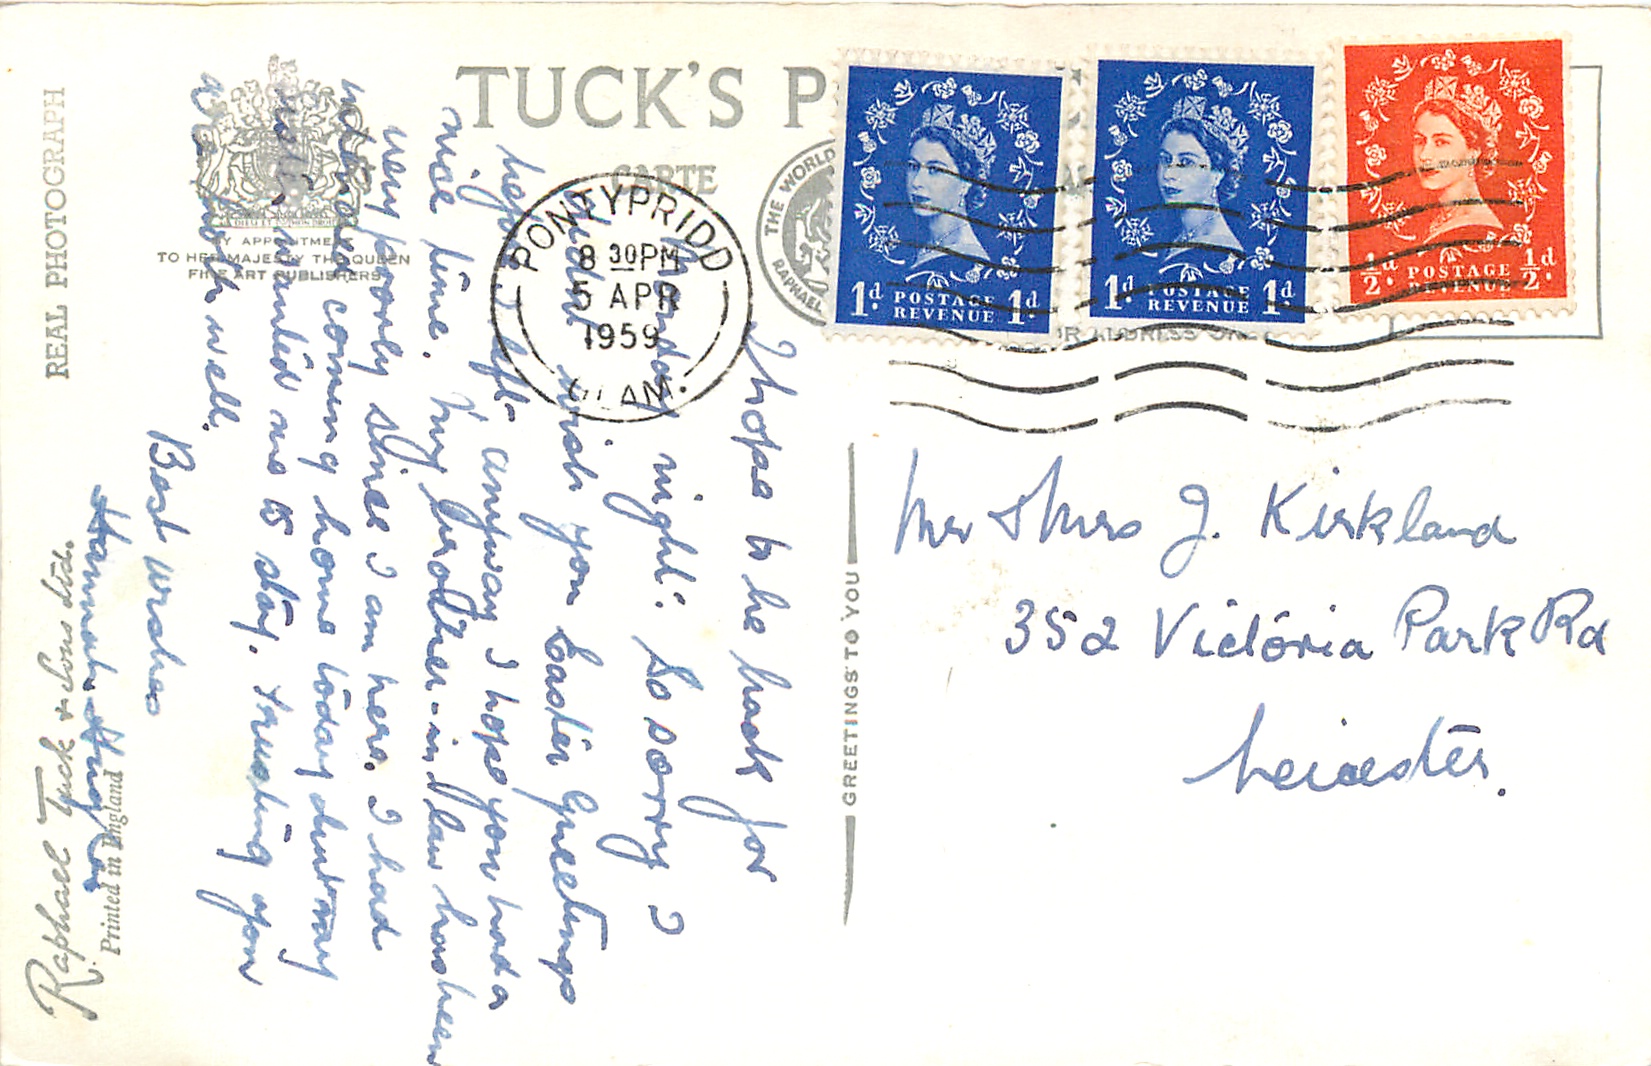 REAL PHOTOGRAPH
BY APPOINTME
TO HER MAJESTY THE QUEEN
FINE ART PUBLISHERS
TUCK'S P
CARTE
THE WORLD
RAPHAEL
PONTYPRIDD
8 30PM
5 APR
1959
GLAM.
1d POSTAGE REVENUE 1d
1d POSTAGE REVENUE 1d
½d. POSTAGE REVENUE ½d.
R ADDRESS ONL
I hope to be back for
Monday night. So sorry I
didnt wish you Easter Greetings
before I left anyway I hope you had a
nice time. My brother-in-law has been
very poorly since I am here. I had
intended coming home today but may
wanted me to stay. Trusting you
are both well.
Best wishes
Hannah
GREETINGS TO YOU
Mr & Mrs J. Kirkland
352 Victoria Park Rd
Leicester.
Raphael Tuck & Sons Ltd.
Printed in England